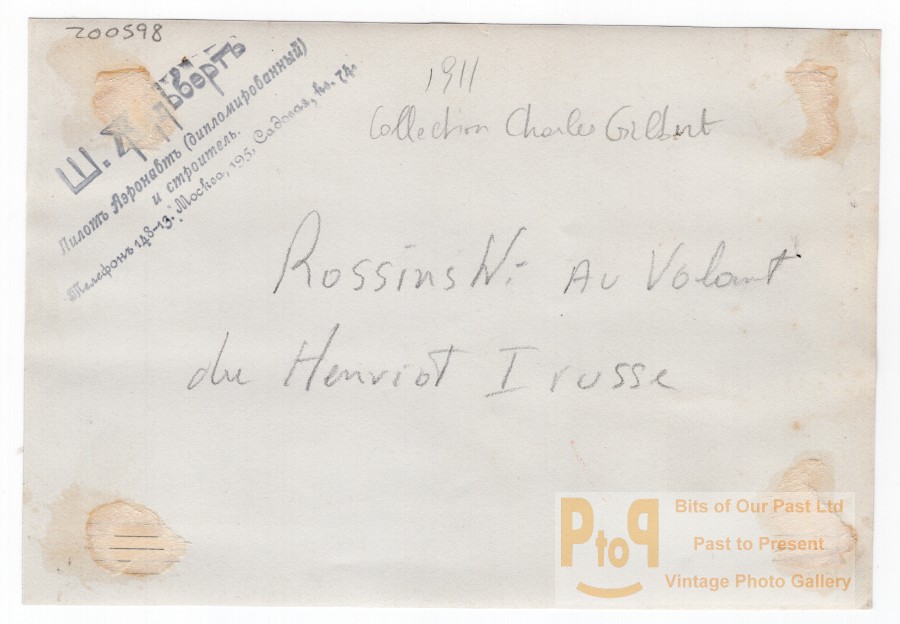 200598
Ш.
Пилотъ Аэронавтъ (дипломированный)
и строитель.
Телефонъ 148-13. Москва, 195, Садовая, кв. 74.
1911
Collection Charles Gilbert
Rossinski Au Volant
du Henriot I russe
PtoP
Bits of Our Past Ltd
Past to Present
Vintage Photo Gallery